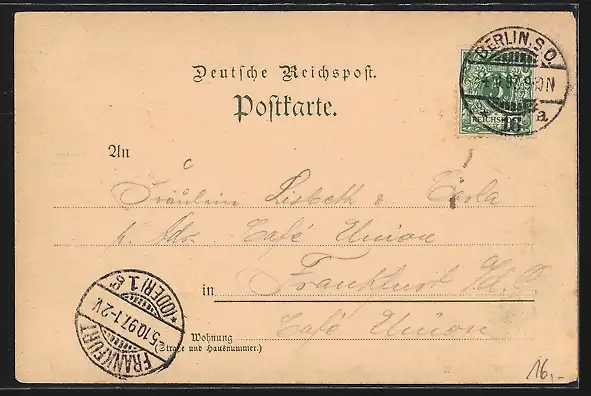 Deutsche Reichspost.
Postkarte.
BERLIN. S.O.
97. 9-10 N
16 a
REICHSPOST
An
Fräulein Lisbeth &
p. Adr. Café Union
in Frankfurt a/d. O.
Café Union
Wohnung
(Straße und Hausnummer.)
FRANKFURT (ODER) 1
5.10.97. 1-2 V
16,-